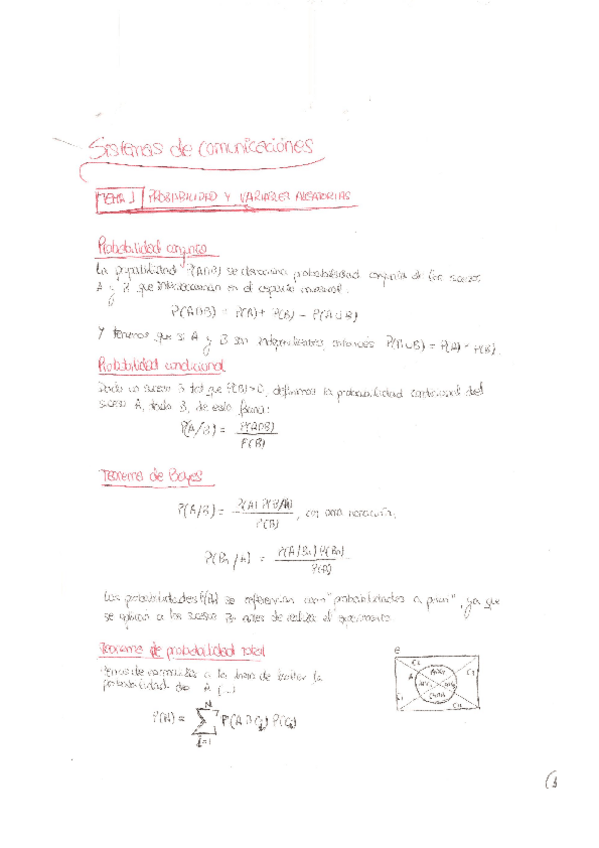 Sistemas de comunicaciónes
TEMA 1 PROBABILIDAD Y VARIABLES ALEATORIAS
Probabilidad conjunta
La probabilidad P(A∩B) se denomina probabilidad conjunta de los sucesos
A y B que interseccionan en el espacio muestral.
P(A∩B) = P(A) + P(B) - P(A∪B)
Y tenemos que si A y B son independientes, entonces P(A∪B) = P(A) - P(B).
Probabilidad condicional
Dado un suceso B tal que P(B)>0, definimos la probabilidad condicional del
suceso A, dado B, de esta forma:
P(A/B) = P(A∩B) / P(B)
Teorema de Bayes
P(A/B) = P(A) P(B/A) / P(B), con otra notación:
P(Bn/A) = P(A/Bn) P(Bn) / P(A)
Las probabilidades se referencian como "probabilidades a priori", ya que
se aplican a los sucesos Bn antes de realizar el experimento.
Teorema de probabilidad total
a la hora de hallar la
probabilidad de A
P(A) = N Σ i=1 P(A∩Ci) P(Ci)